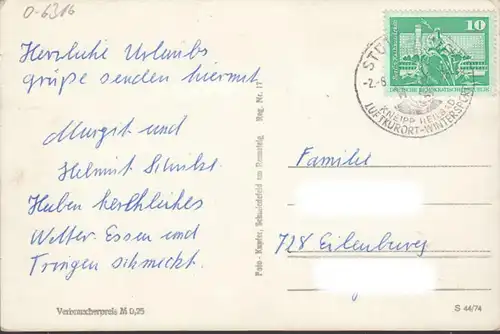 0-6316
Herzliche Urlaubs
grüße senden hiermit
Margit und
Helmut
Haben herrliches
Wetter. Essen und
Tringen schmeckt.
Verbraucherpreis M 0,25
Foto - Kupfer, Schmiedefeld am Rennsteig Reg. Nr. 11
10
DEUTSCHE DEMOKRATISCHE REPUBLIK
KNEIPP HEILBAD
LUFTKURORT-WINTERSPORT
Familie
728 Eilenburg
S 44/74